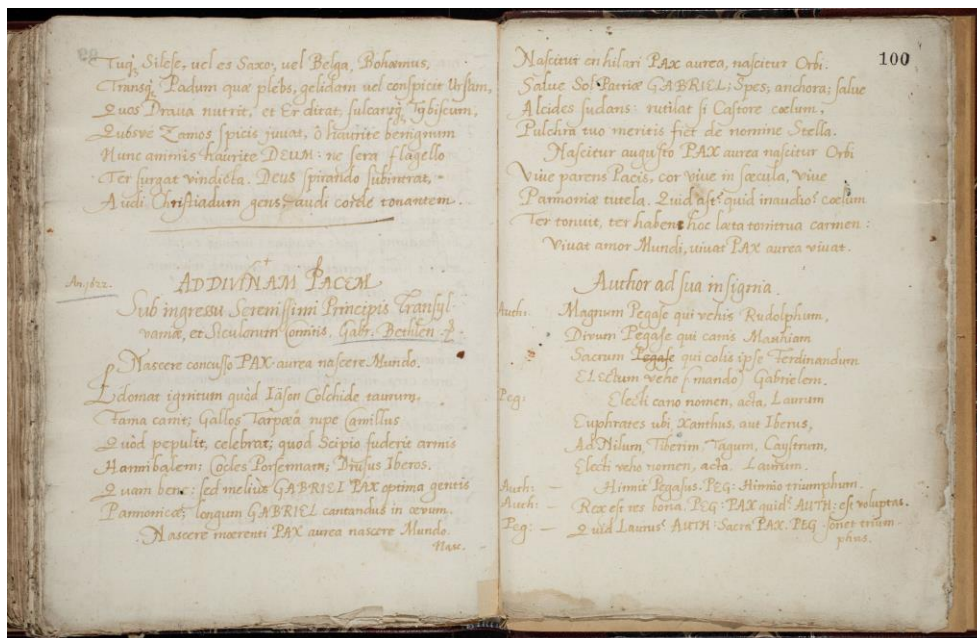 Tuq́, Silese, vel es Saxo, vel Belga, Bohœmus,
Transq́, Padum quæ plebs, gelidam vel conspicit Ursam,
Quos Drava nutrit, et Er ditat, sulcansq́, Tybiscum,
Quosve Zamos spicis juvat, ô haurite benignum
Nunc animis haurite DEUM: ne sera flagello
Ter surgat vindicta. Deus spirando subintrat,
Audi Christiadum gens, audi corde tonantem.
An. 1622.
AD DIVINAM PACEM
Sub ingressu Serenissimi Principis Transyl-
vaniæ, et Siculorum Comitis, Gabr. Bethlen
Nascere concusso PAX aurea nascere Mundo.
Edomat ignitum quòd Iâson Colchide taurum,
Fama canit; Gallos Tarpæâ rupe Camillus
Quòd pepulit, celebrat; quod Scipio fuderit armis
Hannibalem; Cocles Porsennam; Drusus Iberos.
Quam bene: sed meliùs GABRIEL PAX optima gentis
Pannonicæ; longum GABRIEL cantandus in œvum.
Nascere mœrenti PAX aurea nascere Mundo.
Nasc.
100
Nascitur en hilari PAX aurea, nascitur Orbi.
Salve Sol Patriæ GABRIEL; Spes; anchora; salve
Alcides sudans: rutilat si Castore cœlum,
Pulchra tuo meritis fiet de nomine Stella.
Nascitur augusto PAX aurea nascitur Orbi
Vive parens Pacis, cor vive in sæcula, vive
Pannoniæ tutela. Quid ast? quid inaudio? cœlum
Ter tonuit, ter habent hoc læta tonitrua carmen:
Vivat amor Mundi, vivat PAX aurea vivat.
Author ad sua insignia.
Auth: Magnum Pegase qui vehis Rudolphum,
Divum Pegase qui canis Mathiam
Sacrum Pegase qui colis ipse Ferdinandum
ELEctum vehe (mando) Gabrielem.
Peg: Electi cano nomen, acta, Laurum
Euphrates ubi, Xanthus, aut Iberus,
Ad Nilum, Tiberim, Tagum, Caystrum,
Electi veho nomen, acta. Laurum.
Auth: — Hinnit Pegasus. PEG: Hinnio triumphum.
Auth: — Rex est res bona. PEG: PAX quid? AUTH: est voluptas.
Peg: — Quid Laurus? AUTH: Sacra PAX. PEG: sonet trium-
phus.